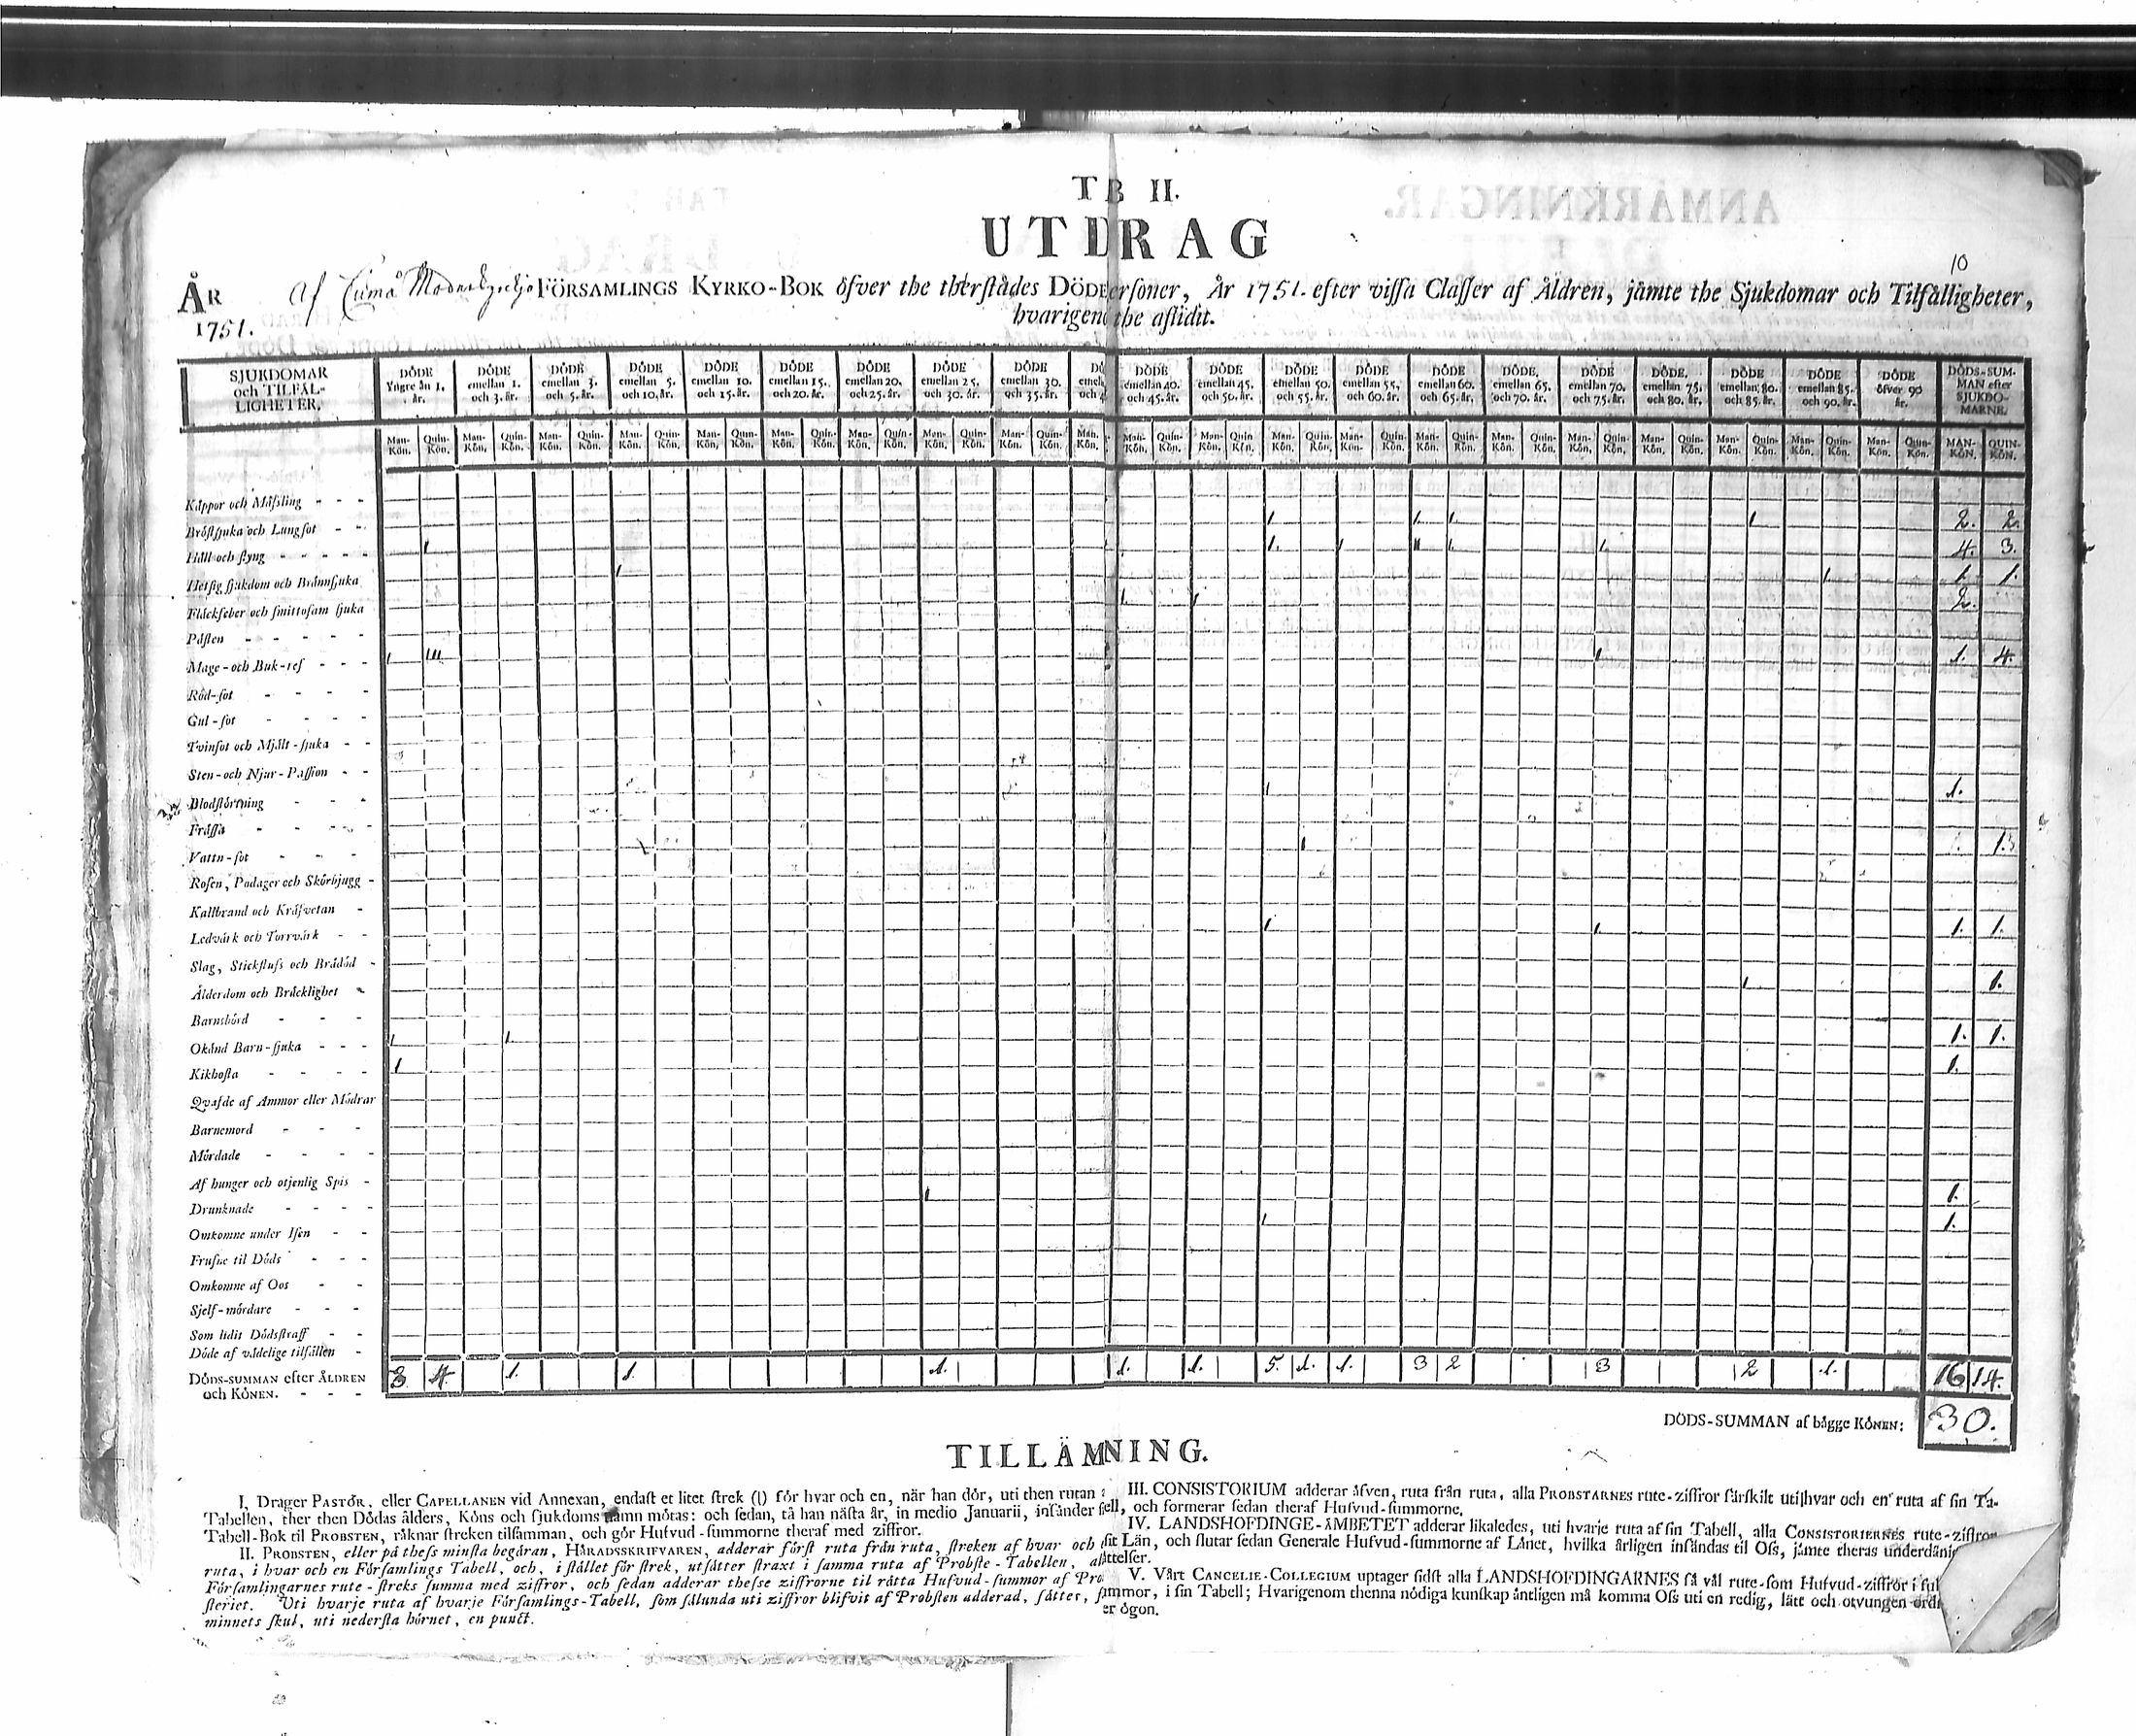 TB II.
UTDRAG
10
ÅR af Moderkyrkjo FÖRSAMLINGS KYRKO-BOK öfver the therstädes DÖDE ersoner, År 1751. efter vissa Classer af Åldren, jämte the Sjukdomar och Tilfälligheter,
1751. hvarigen the aflidit.
SJUKDOMAR och TILFÄL-LIGHETER. | DÖDE Yngre än 1. år. | DÖDE emellan 1. och 3. år. | DÖDE emellan 3. och 5. år. | DÖDE emellan 5. och 10. år. | DÖDE emellan 10. och 15. år. | DÖDE emellan 15. och 20. år. | DÖDE emellan 20. och 25. år. | DÖDE emellan 25. och 30. år. | DÖDE emellan 30. och 35. år. | DÖDE emellan 40. och 45. år. | DÖDE emellan 45. och 50. år. | DÖDE emellan 50. och 55. år. | DÖDE emellan 55. och 60. år. | DÖDE emellan 60. och 65. år. | DÖDE, emellan 65. och 70. år. | DÖDE emellan 70. och 75. år. | DÖDE, emellan 75. och 80. år. | DÖDE emellan 80. och 85. år. | DÖDE emellan 85. och 90. år. | DÖDE öfver 90 år. | DÖDS-SUM-MAN efter SJUKDO-MARNE.
Man-Kön. Quin-Kön. Man-Kön. Quin-Kön. Man-Kön. Quin-Kön. Man-Kön. Quin-Kön. Man-Kön. Quin-Kön. Man-Kön. Quin-Kön. Man-Kön. Quin-Kön. Man-Kön. Quin-Kön. Man-Kön. Quin-Kön. Man. Kön. Man-Kön. Quin-Kön. Man-Kön. Quin-Kön. Man-Kön. Quin-Kön. Man-Kön. Quin-Kön. Man-Kön. Quin-Kön. Man-Kön. Quin-Kön. Man-Kön. Quin-Kön. Man-Kön. Quin-Kön. Man-Kön. Quin-Kön. Man-Kön. Quin-Kön. Man-Kön. Quin-Kön. MAN-KÖN. QUIN-KÖN.
Kåppor och Måssling - - -
Bröstsjuka och Lungsot - - 1 1 1 1 2. 2.
Håll och styng - - - - - 1 1. 1 11 1 1 4. 3.
Hetsig sjukdom och Brännsjuka 1 1 1. 1.
Fläckfeber och smittosam sjuka 1. 1 2.
Pästen - - - - -
Mage-och Buk-ref - - - 1 111 1 1. 4.
Röd-sot - - - -
Gul-sot - - - -
Tvinsot och Mjält-sjuka - -
Sten-och Njur-Passion - -
Blodstörtning - - - 1 1.
Frässa - - - -
Vattn-sot - - - 1 1.
Rosen, Podager och Skörbjugg -
Kallbrand och Kräfvetan -
Ledvärk och Torrvärk - - 1 1 1. 1.
Slag, Stickfluss och Brådöd -
Ålderdom och Bräcklighet - 1 1.
Barnsbörd - - -
Okänd Barn-sjuka - - - 1 1 1. 1.
Kikhosta - - - - 1 1.
Qvafde af Ammor eller Mödrar
Barnemord - - -
Mördade - - - -
Af hunger och otjenlig Spis -
Drunknade - - - - 1 1.
Omkomne under Isen - - 1 1.
Frusne til Döds - - -
Omkomne af Oos - -
Sjelf-mördare - - -
Som lidit Dödsstraff - -
Döde af vådelige tilfällen -
DÖDS-SUMMAN efter ÅLDREN och KÖNEN. - - - 3 4. 1. 1. 1. 1. 1. 5. 1. 1. 3 2 3 2 1. 16 14.
DÖDS-SUMMAN af bägge KÖNEN: 30.
TILLÄMNING.
I. Drager PASTOR, eller CAPELLANEN vid Annexan, endast et litet strek (l) för hvar och en, när han dör, uti then rutan
Tabellen, ther then Dödas ålders, Köns och sjukdoms namn mötas: och sedan, tå han nästa år, in medio Januarii, insänder
Tabell-Bok til PROBSTEN, räknar streken tilsamman, och gör Hufvud-summorne theraf med ziffror.
II. PROBSTEN, eller på thess minsta begäran, HÄRADSSKRIFVAREN, adderar först ruta från ruta, streken af hvar och
ruta, i hvar och en Församlings Tabell, och, i stället för strek, utsätter straxt i samma ruta af Probste-Tabellen,
Församlingarnes rute-streks summa med ziffror, och sedan adderar thesse ziffrorne til rätta Hufvud-summor af Pro
steriet. Uti hvarje ruta af hvarje Församlings-Tabell, som sålunda uti ziffror blifvit af Probsten adderad, sätter,
minnets skul, uti nedersta hörnet, en punct.
III. CONSISTORIUM adderar äfven, ruta från ruta, alla PROBSTARNES rute-ziffror särskilt uti hvar och en ruta af sin Ta-
ell, och formerar sedan theraf Hufvud-summorne.
IV. LANDSHÖFDINGE-ÄMBETET adderar likaledes, uti hvarje ruta af sin Tabell, alla CONSISTORIERNES rute-ziffror
sit Län, och slutar sedan Generale Hufvud-summorne af Länet, hvilka årligen insändas til Oss, jämte theras underdåni
ättelser.
V. Vårt CANCELIE-COLLEGIUM uptager sidst alla LANDSHÖFDINGARNES så väl rute-som Hufvud-ziffror i
summor, i sin Tabell; Hvarigenom thenna nödiga kunskap äntligen må komma Oss uti en redig, lätt och otvungen ord
er ögon.